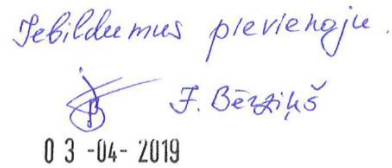 Iebildumus pievienoju.
J. Bērziņš
0 3 -04- 2019